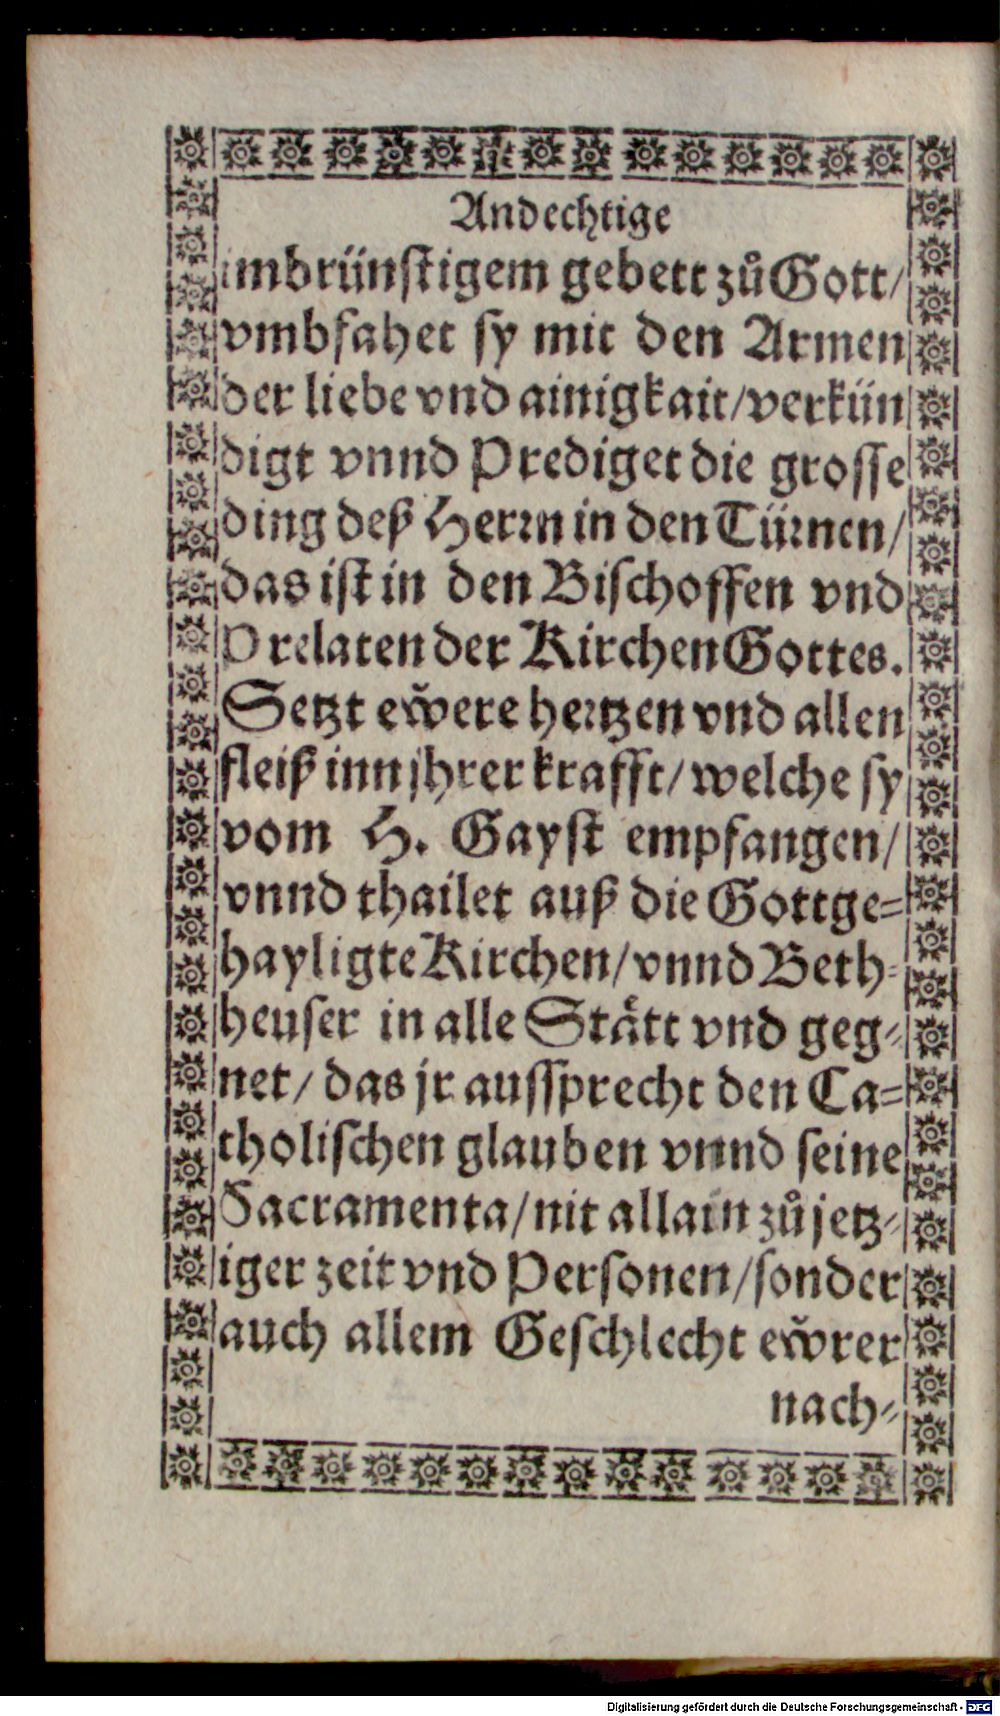 Andechtige
imbrünstigem gebett zů Gott/
vmbfahet sy mit den Armen
der liebe vnd ainigkait/verkün
digt vnnd Prediget die grosse
ding deß Herrn in den Türnen/
das ist in den Bischoffen vnd
Prelaten der Kirchen Gottes.
Setzt ew̌ere hertzen vnd allen
fleiß inn jhrer krafft/ welche sy
vom H. Gayst empfangen/
vnnd thailet auß die Gottge=
hayligte Kirchen/ vnnd Beth=
heuser in alle Stått vnd geg=
net/ das jr aussprecht den Ca=
tholischen glauben vnnd seine
Sacramenta/nit allain zů jetz=
iger zeit vnd Personen/sonder
auch allem Geschlecht ew̌rer
nach=
Digitalisierung gefördert durch die Deutsche Forschungsgemeinschaft - DFG